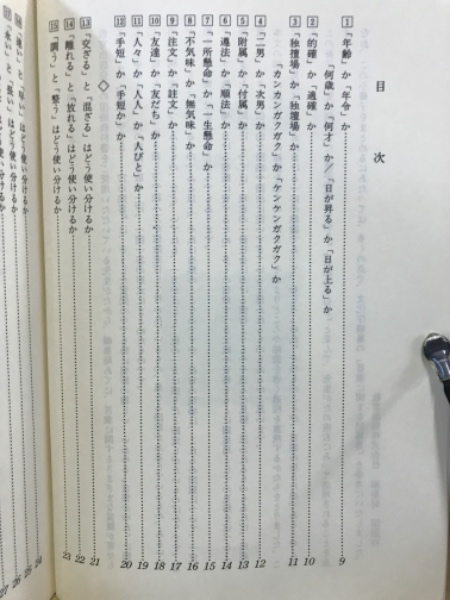 目次
1 「年齢」か「年令」か 9
「何歳」か「何才」か／「日が昇る」か「日が上る」か
2 「的確」か「適確」か 10
3 「独擅場」か「独壇場」か 11
「カンカンガクガク」か「ケンケンガクガク」か
4 「二男」か「次男」か 12
5 「附属」か「付属」か 13
6 「遵法」か「順法」か 14
7 「一所懸命」か「一生懸命」か 15
8 「不気味」か「無気味」か 16
9 「注文」か「註文」か 17
10 「友達」か「友だち」か 18
11 「人々」か「人人」か「人びと」か 19
12 「手短」か「手短か」か 20
◇
13 「交ざる」と「混ざる」はどう使い分けるか 21
14 「離れる」と「放れる」はどう使い分けるか 22
15 「調う」と「整う」はどう使い分けるか 23
16 「速い」と「早い」はどう使い分けるか 24
17 「永い」と「長い」はどう使い分けるか 25
26
27